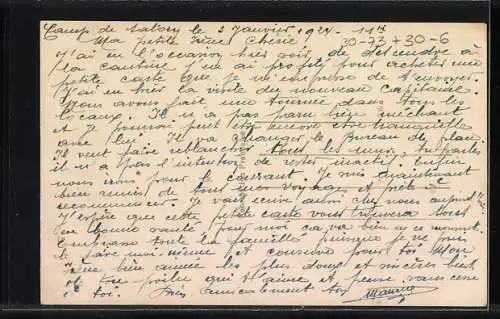 Camp de Satory le 3 Janvier 1924. 11H
Ma petite Irène Chérie! 30-73 + 30-6
J'ai eu l'occasion hier soir de descendre à
la cantine j'en ai profité pour acheter une
petite carte que je m'empresse de t'envoyer.
J'ai eu hier la visite du nouveau Capitaine.
Nous avons fait une tournée dans tous les
locaux. Il n'a pas paru bien méchant
et je pourrai peut être encore être tranquille
avec lui. Il va changer le Bureau de place.
Il veut faire reblanchir tous les murs
il n'a pas l'intention de rester inactif. Enfin
nous irons pour le courant. Je suis maintenant
bien remis de tous mes voyages et prêt à
recommencer. Je vais écrire aussi chez nous aujourd'hui
J'espère que cette petite carte vous trouvera tous
en bonne santé. Pour moi ça va bien en ce moment.
Embrasse toute la famille puisque je ne puis
le faire moi-même et conserve pour toi Mon
Irène bien aimée les plus doux et meilleurs
de ton petit qui t'aime et pense sans cesse
à toi. Bien amicalement ton Maurice